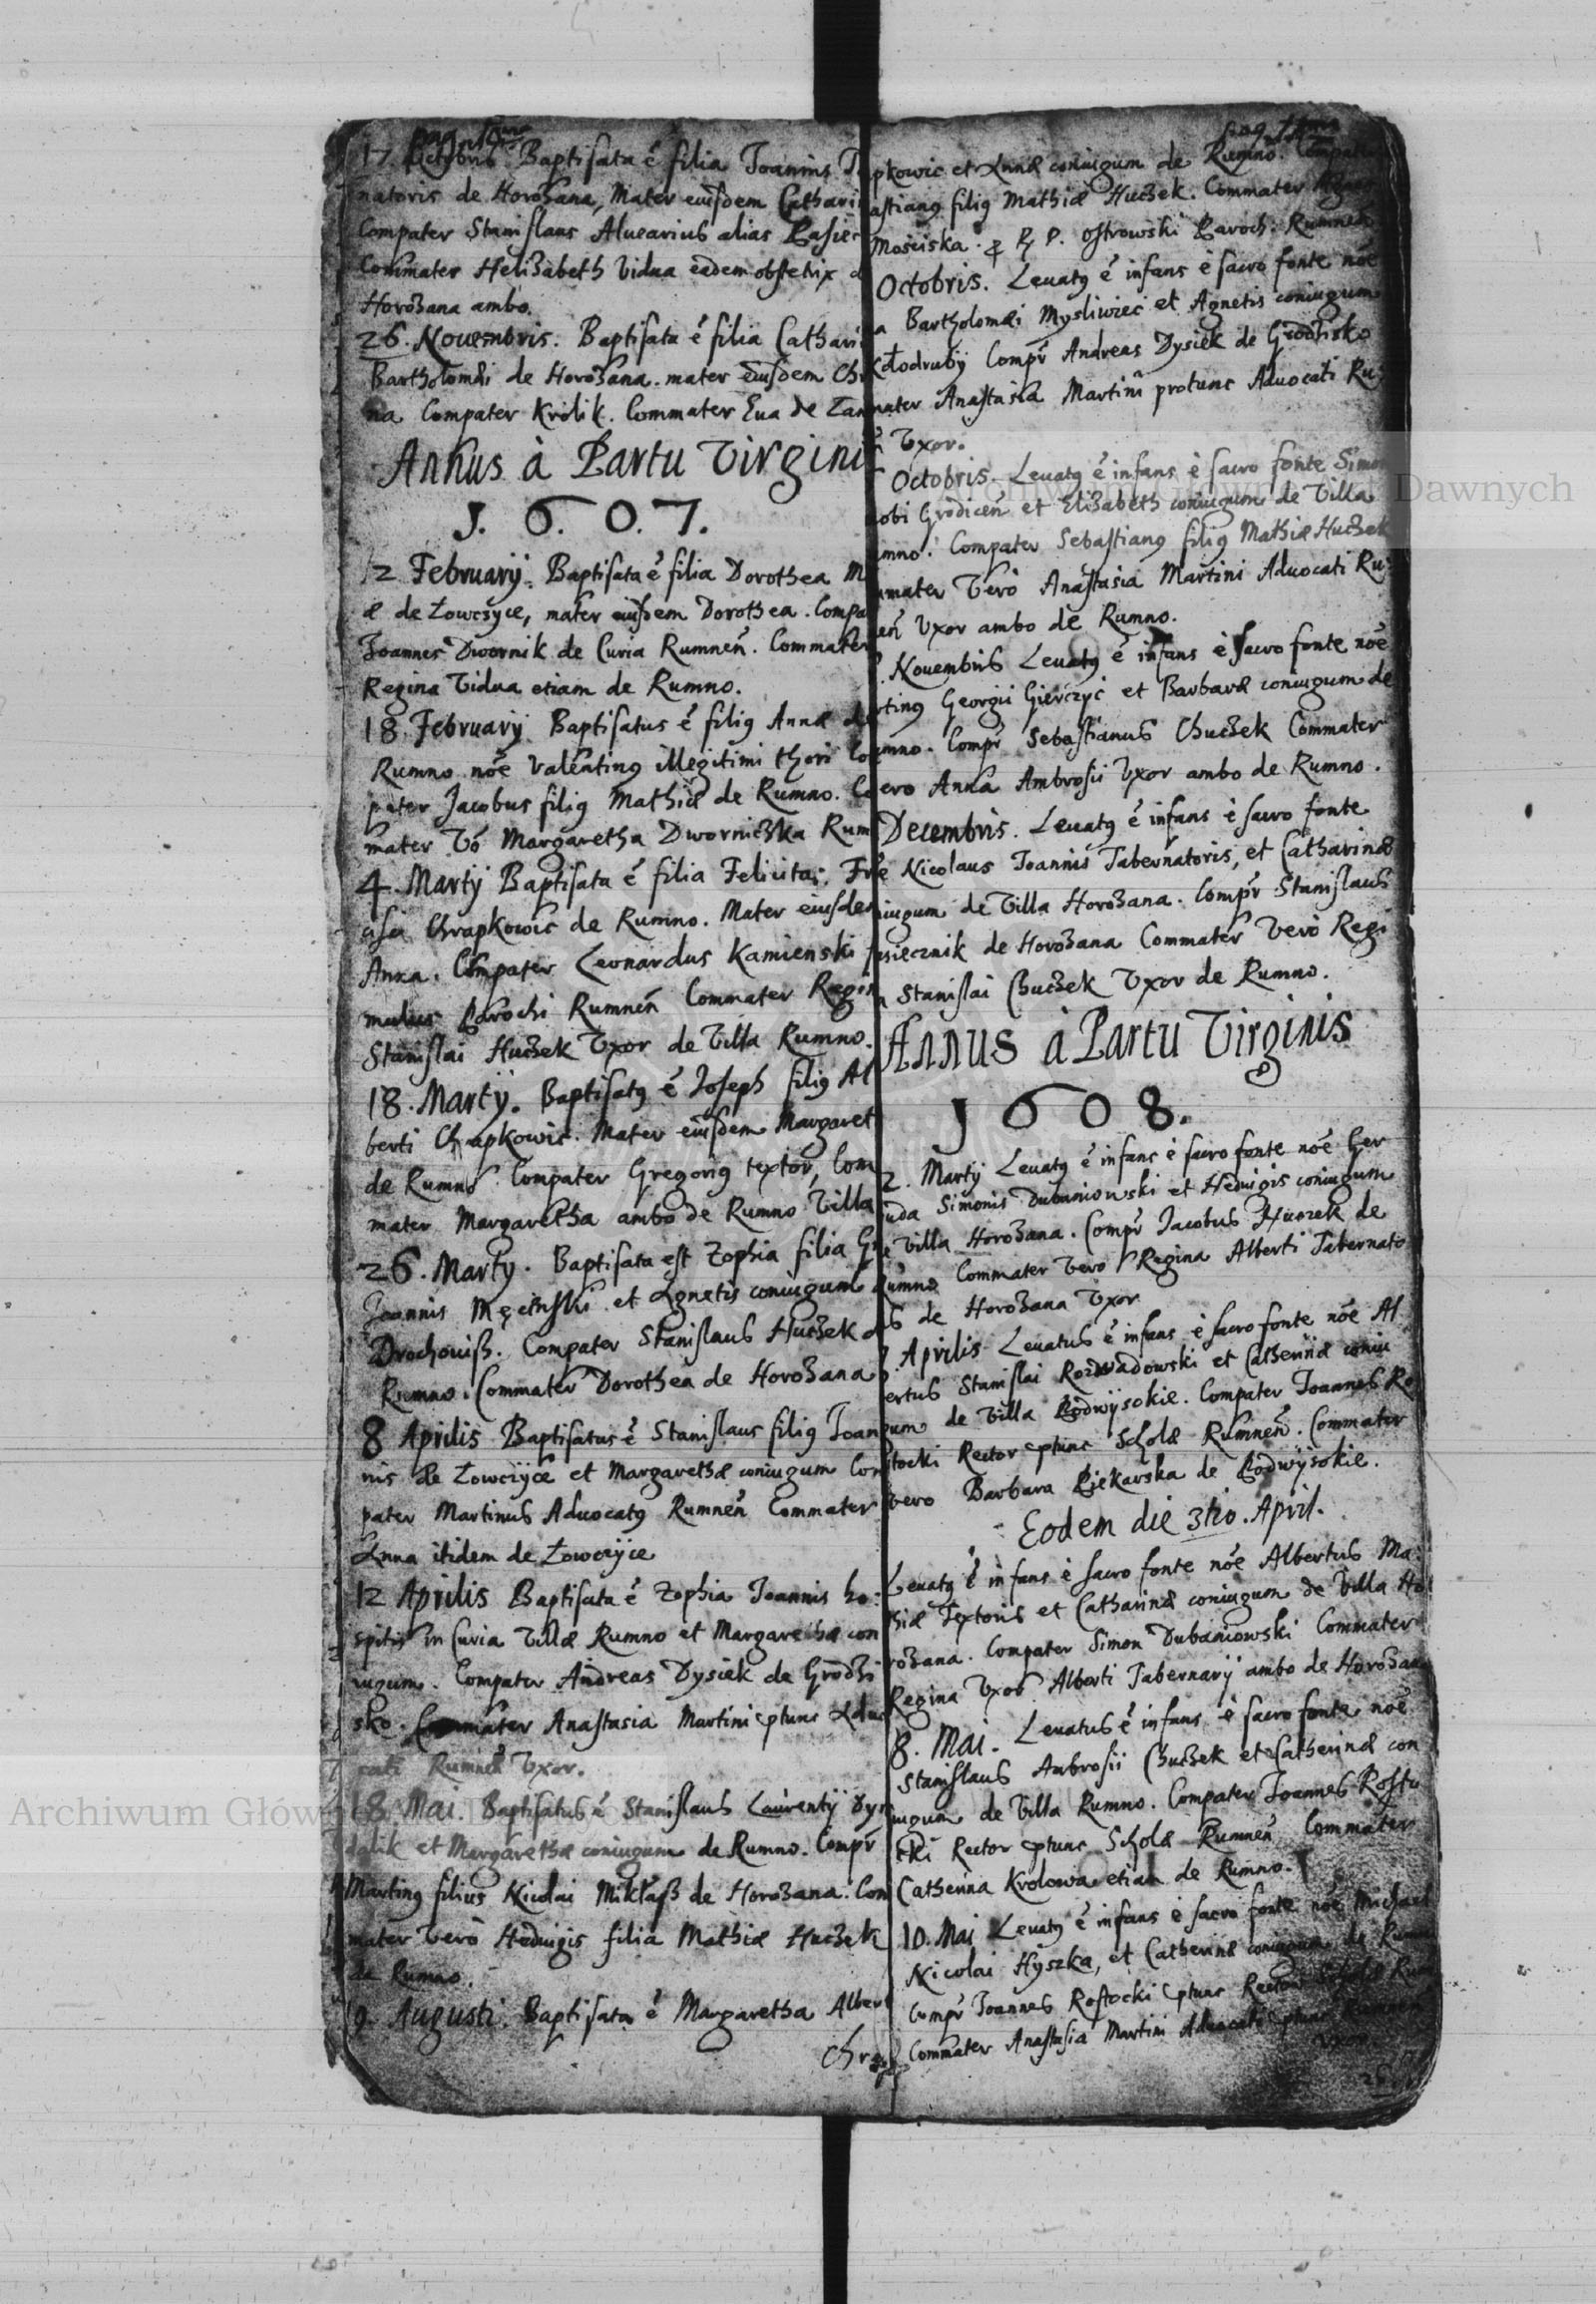 17. Octobris. Baptisata ē filia Joannis Ta
natoris de Horożana, Mater eiusdem Cathari
Compater Stanislaus Aluearius alias Pasiec
Commater Helizabeth Vidua eadem obstetrix
Horożana ambo.
26. Nouembris. Baptisata ē filia Cathari
Bartholomæi de Horożana. mater eiusdem Chr
na Compater Krolik. Commater Eua de
Annus à Partu Virgini
1. 6. 0. 7.
12 February. Baptisata ē filia Dorothea M
æ de Łowczyce, mater eiusdem Dorothea. Compa
Joannes Dwornik de Curia Rumneñ. Commater
Regina Vidua etiam de Rumno.
18. February. Baptisatus ē filiꝯ Annæ de
Rumno nōe Valentinꝯ illegitimi thori Co
pater Jacobus filiꝯ Mathiæ de Rumno. Co
mater Vō Margaretha Dworniczka Rum
4. Martÿ Baptisata ē filia Felicitas, Fr
cisci Chrapkowic de Rumno. Mater eiusdem
Anna. Compater Leonardus Kamienski fa
mulus Parochi Rumneñ Commater Regin
Stanislai Huczek Vxor de Villa Rumno.
18. Martÿ. Baptisatꝯ ē Joseph filiꝯ Al
berti Chrapkowic. Mater eiusdem Margaret
de Rumno. Compater Gregoriꝯ textor, Com
mater Margaretha ambo de Rumno Villa
26. Martÿ. Baptisata est Zophia filia G
Joannis Męcinski et Agnetis coniugum
Drochouiß. Compater Stanislaus Huczek d
Rumno. Commater Dorothea de Horożana
8 Aprilis Baptisatus ē Stanislaus filiꝯ Joan
nis de Łowczÿce et Margarethæ coniugum Com
pater Martinus Aduocatꝯ Rumneñ Commater
Anna itidem de Łowczÿce
12 Aprilis Baptisata ē Zophia Joannis ho:
spitis in Curia Villæ Rumno et Margarethæ con
iugum. Compater Andreas Dysiek de Grodzi
sko. Commater Anastasia Martini ptunc Aduo
cati Rumneñ Vxor.
18. Mai. Baptisatus ē Stanislaus Laurentÿ Dyr
dalik et Margarethæ coniugum de Rumno. Compr̄
Martinꝯ filius Nicolai Miklaß de Horożana. Com
mater Verò Heduigis filia Mathiæ Huczek
de Rumno.
19. Augusti. Baptisata ē Margaretha Albert
Chrap
pkowic et Annæ coniugum de Rumno. Compater
astianꝯ filiꝯ Mathiæ Huczek. Commater Agnes
Mosciska. P. Ostrowski Paroch. Rumneñ
Octobris. Leuatꝯ ē infans è sacro fonte nōe
a Bartholomæi Mysliwiec et Agnetis coniugum
Kdodruby Compr̄ Andreas Dysiek de Grodzisko
mater Anastasia Martini protunc Aduocati Ru
Vxor.
Octobris. Leuatꝯ ē infans è sacro fonte Simo
cobi Grodiceñ et Elizabeth coniugum de Villa
umno. Compater Sebastianꝯ filiꝯ Mathiæ Huczek
mmater Verò Anastasia Martini Aduocati Ru:
eñ Vxor ambo de Rumno.
Nouembris Leuatꝯ ē infans è sacro fonte nōe
rtinꝯ Georgii Gierczyc et Barbaræ coniugum de
umno. Compr̄ Sebastianus Chuczek Commater
ero Anna Ambrosii Vxor ambo de Rumno.
Decembris. Leuatꝯ ē infans è sacro fonte
e Nicolaus Joannis Tabernatoris, et Catharinæ
iugum de Villa Horożana. Compr̄ Stanislaus
asiecznik de Horożana Commater Verò Regi
a Stanislai Chuczek Vxor de Rumno.
Annus à Partu Virginis
1 6 0 8.
2. Martÿ Leuatꝯ ē infans è sacro fonte nōe Ger
uda Simonis Dubaniowski et Heduigis coniugum
e Villa Horożana. Compr̄ Jacobus Huczek de
Rumno Commater Vero Regina Alberti Tabernato
is de Horożana Vxor
3. Aprilis Leuatus ē infans è sacro fonte nōe Al
ertus Stanislai Rozwadowski et Catherinæ coniu
gum de Villa Podwÿsokie. Compater Joannes Ro
stocki Rector ptunc Scholæ Rumneñ. Commater
vero Barbara Piekarska de Podwÿsokie.
Eodem die 3tio. April.
Leuatꝯ ē infans è sacro fonte nōe Albertus Ma:
thiæ Textoris et Catharinæ coniugum de Villa Ho
rożana. Compater Simon Dubaniowski Commater
Regina Vxor Alberti Tabernarÿ ambo de Horożana
8. Mai. Leuatus ē infans è sacro fonte nōe
Stanislaus Ambrosii Chuczek et Catherinæ con
iugum de Villa Rumno. Compater Joannes Rosto
cki Rector ptunc Scholæ Rumneñ Commater
Catherina Krolowa etiam de Rumno.
10. Mai Leuatꝯ ē infans è sacro fonte nōe Michael
Nicolai Hyszka, et Catherinæ coniugum de Rumno
Compr̄ Joannes Rostocki ptunc Rector Scholæ Rum
Commater Anastasia Martini Aduocati ptunc Rumneñ
Vxor
Archiwum Główne Akt Dawnych
Archiwum Główne Akt Dawnych